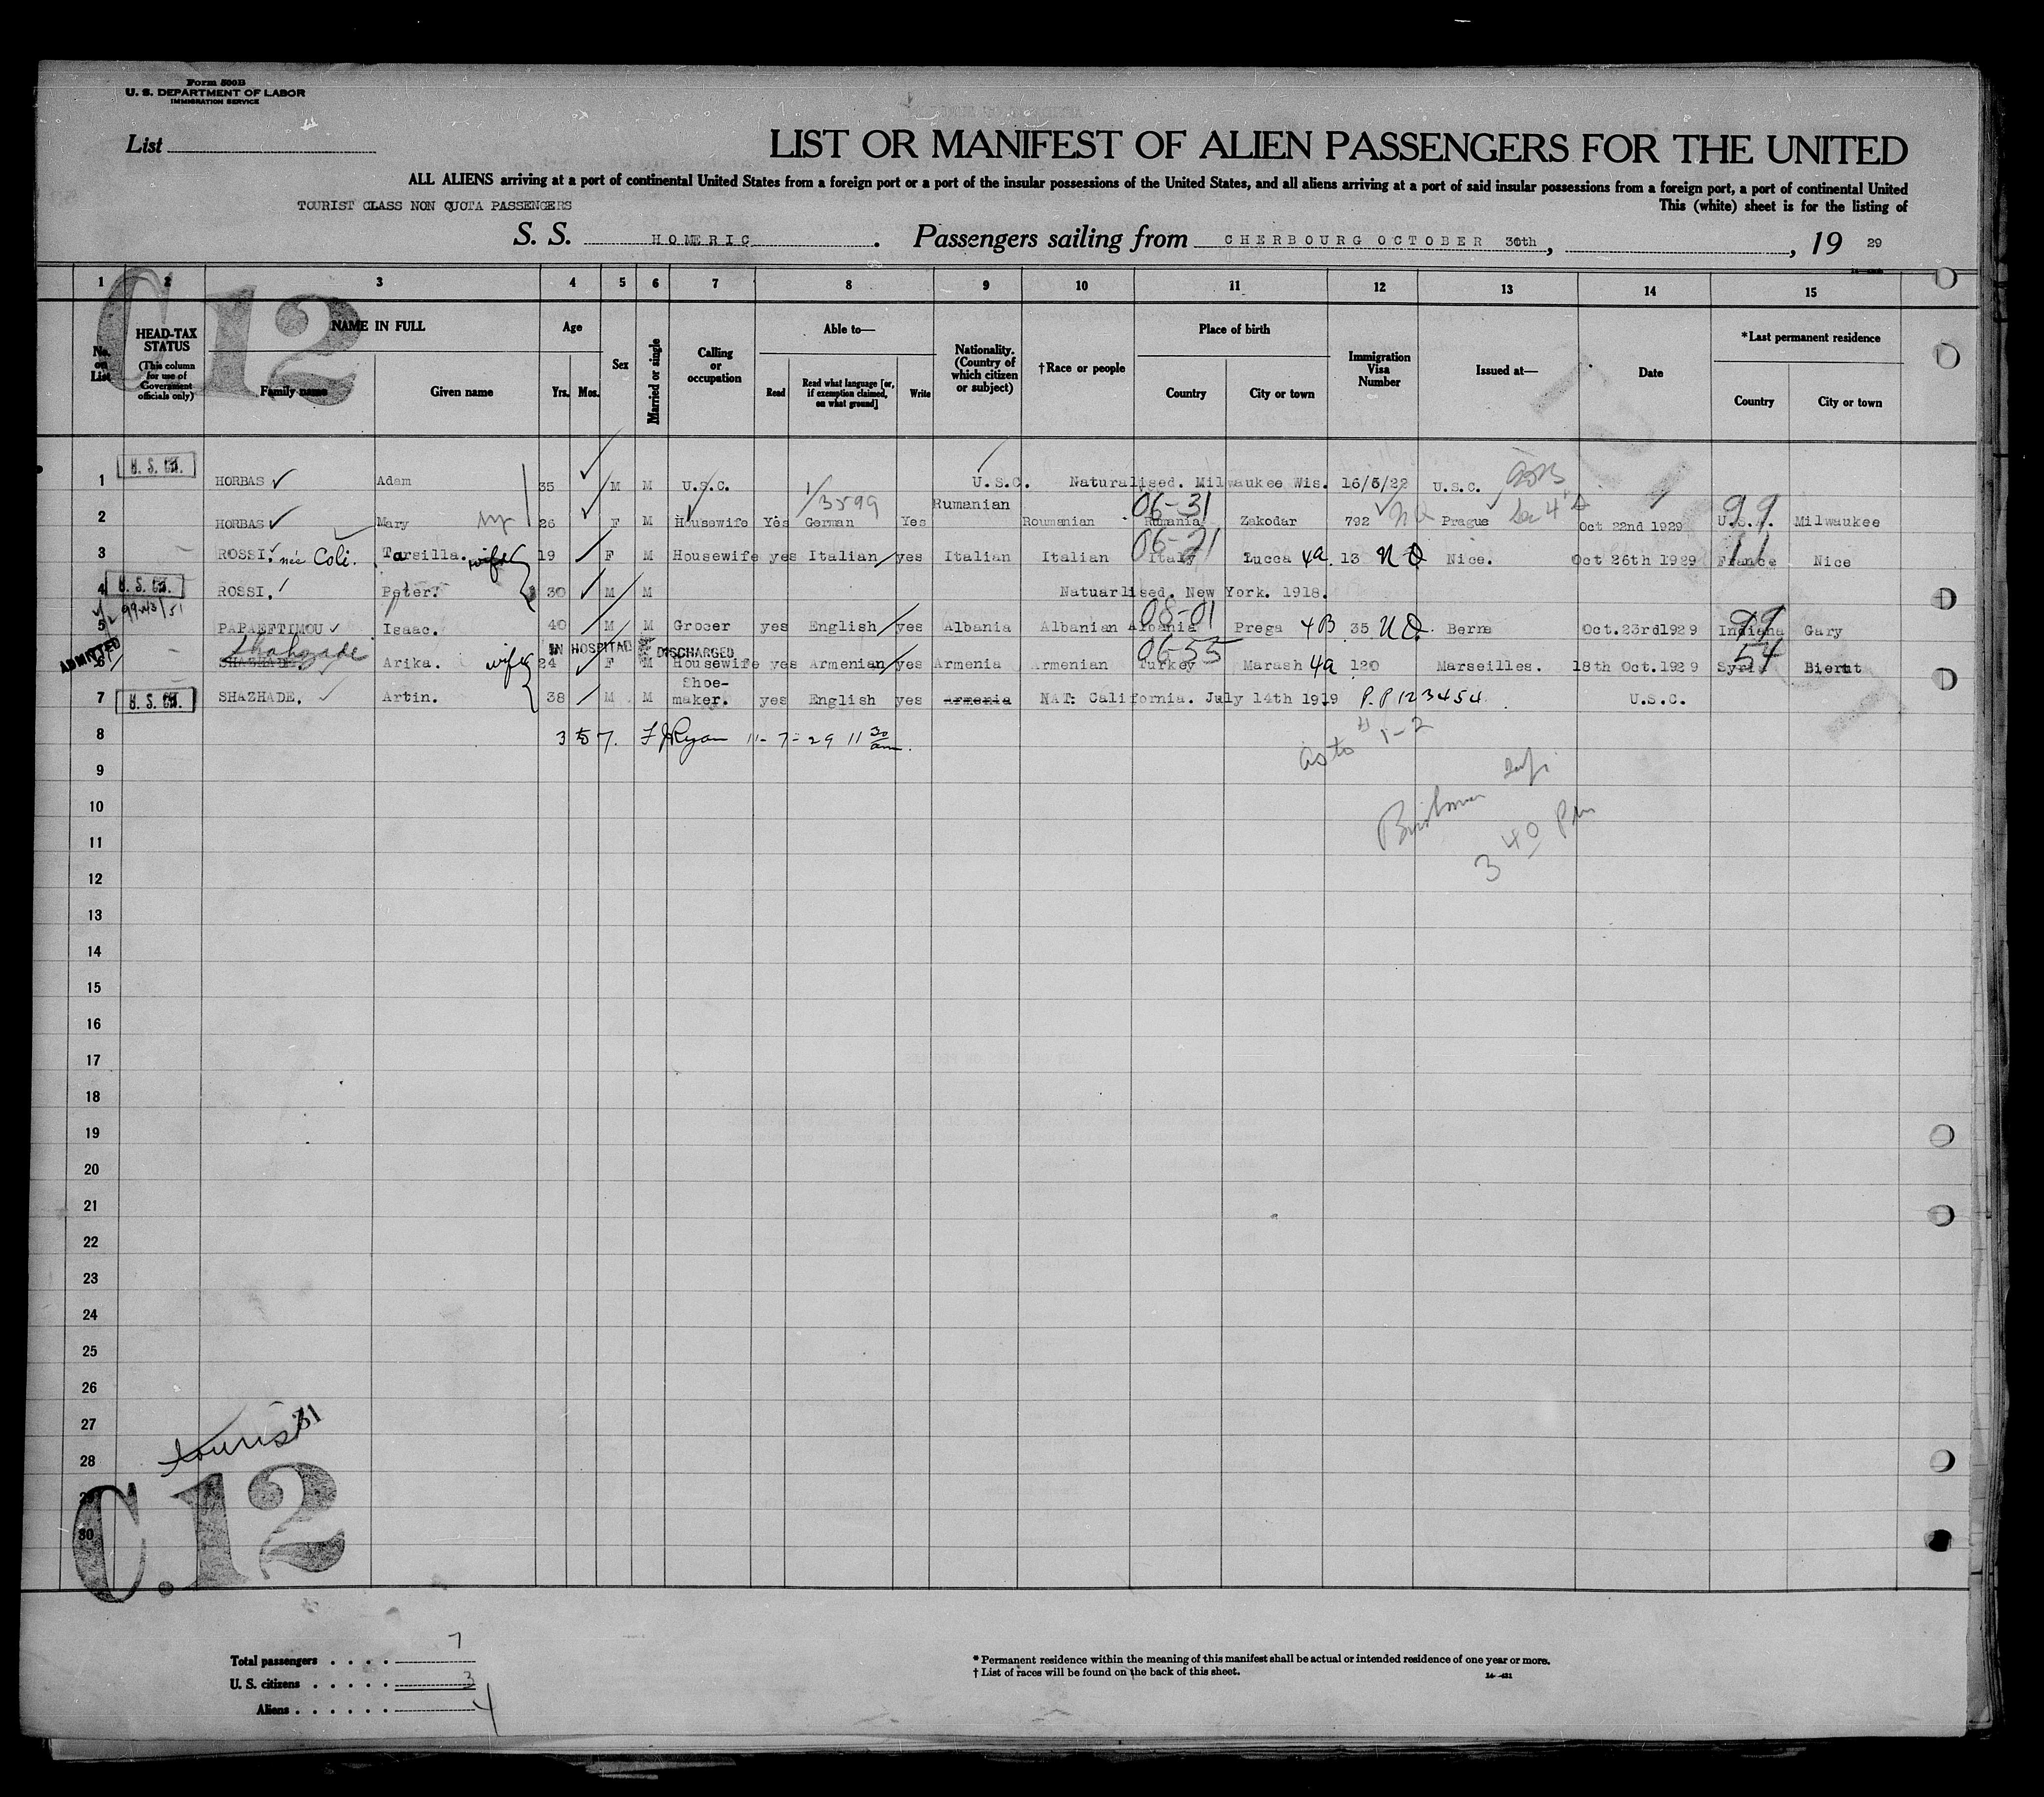 Form 500B
U. S. DEPARTMENT OF LABOR
IMMIGRATION SERVICE
List
LIST OR MANIFEST OF ALIEN PASSENGERS FOR THE UNITED
ALL ALIENS arriving at a port of continental United States from a foreign port or a port of the insular possessions of the United States, and all aliens arriving at a port of said insular possessions from a foreign port, a port of continental United
TOURIST CLASS NON QUOTA PASSENGERS
This (white) sheet is for the listing of
S. S. HOMERIC. Passengers sailing from CHERBOURG OCTOBER 30th, , 19 29
1 2 3 4 5 6 7 8 9 10 11 12 13 14 15
C 12
No. on List
HEAD-TAX STATUS (This column for use of Government officials only)
NAME IN FULL
Family name Given name
Age Yrs. Mos.
Sex
Married or single
Calling or occupation
Able to—
Read Read what language [or, if exemption claimed, on what ground] Write
Nationality. (Country of which citizen or subject)
† Race or people
Place of birth
Country City or town
Immigration Visa Number
Issued at—
Date
*Last permanent residence
Country City or town
1 U. S. Cit. HORBAS Adam 35 M M U.S.C. U.S.C. Naturalised. Milwaukee Wis. 16/5/22 U.S.C.
1/3599 06-31 99
2 HORBAS Mary 26 F M Housewife Yes German Yes Rumanian Roumanian Rumania Zakodar 792 Prague Oct 22nd 1929 U.S.A. Milwaukee
06-21 11
3 ROSSI. née Coli. Tarsilla. wife 19 F M Housewife yes Italian yes Italian Italian Italy Lucca 4a. 13 NQ Nice. Oct 26th 1929 France Nice
4 U. S. Cit. ROSSI. Peter. 30 M M Natuarlised. New York. 1918.
08-01 99
5 PAPAEFTIMOU Isaac. 40 M M Grocer yes English yes Albania Albanian Albania Prega 4B 35 NQ. Berne Oct.23rd1929 Indiana Gary
Shahzade IN HOSPITAL DISCHARGED 06-55 54
ADMITTED 6 SHAZHADE. Arika. wife 24 F M Housewife yes Armenian yes Armenia Armenian Turkey Marash 4a 120 Marseilles. 18th Oct.1929 Syria Bierut
7 U. S. Cit. SHAZHADE. Artin. 38 M M Shoe-maker. yes English yes Armenia NAT: California. July 14th 1919 P.P 123454 U.S.C.
8 357. F J Ryan 11-7-29 11 30 am.
as to # 1-2
9
10
11 3 40 Pm
12
13
14
15
16
17
18
19
20
21
22
23
24
25
26
27
tourist 31
28
29
30
C.12
Total passengers . . . . 7
U. S. citizens . . . . . 3
Aliens . . . . . . 4
* Permanent residence within the meaning of this manifest shall be actual or intended residence of one year or more.
† List of races will be found on the back of this sheet.